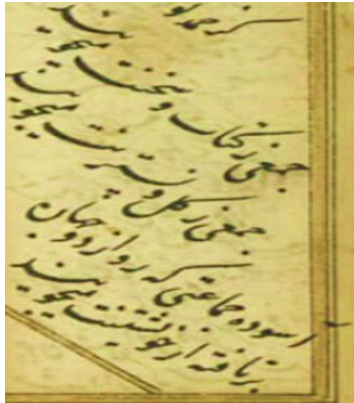 جمعی ز کتاب و سخنت میجویند
جمعی ز گل و نسترنت میجویند
آسوده جماعتی که رو از دو جهان
برتافته از خویشتنت میجویند